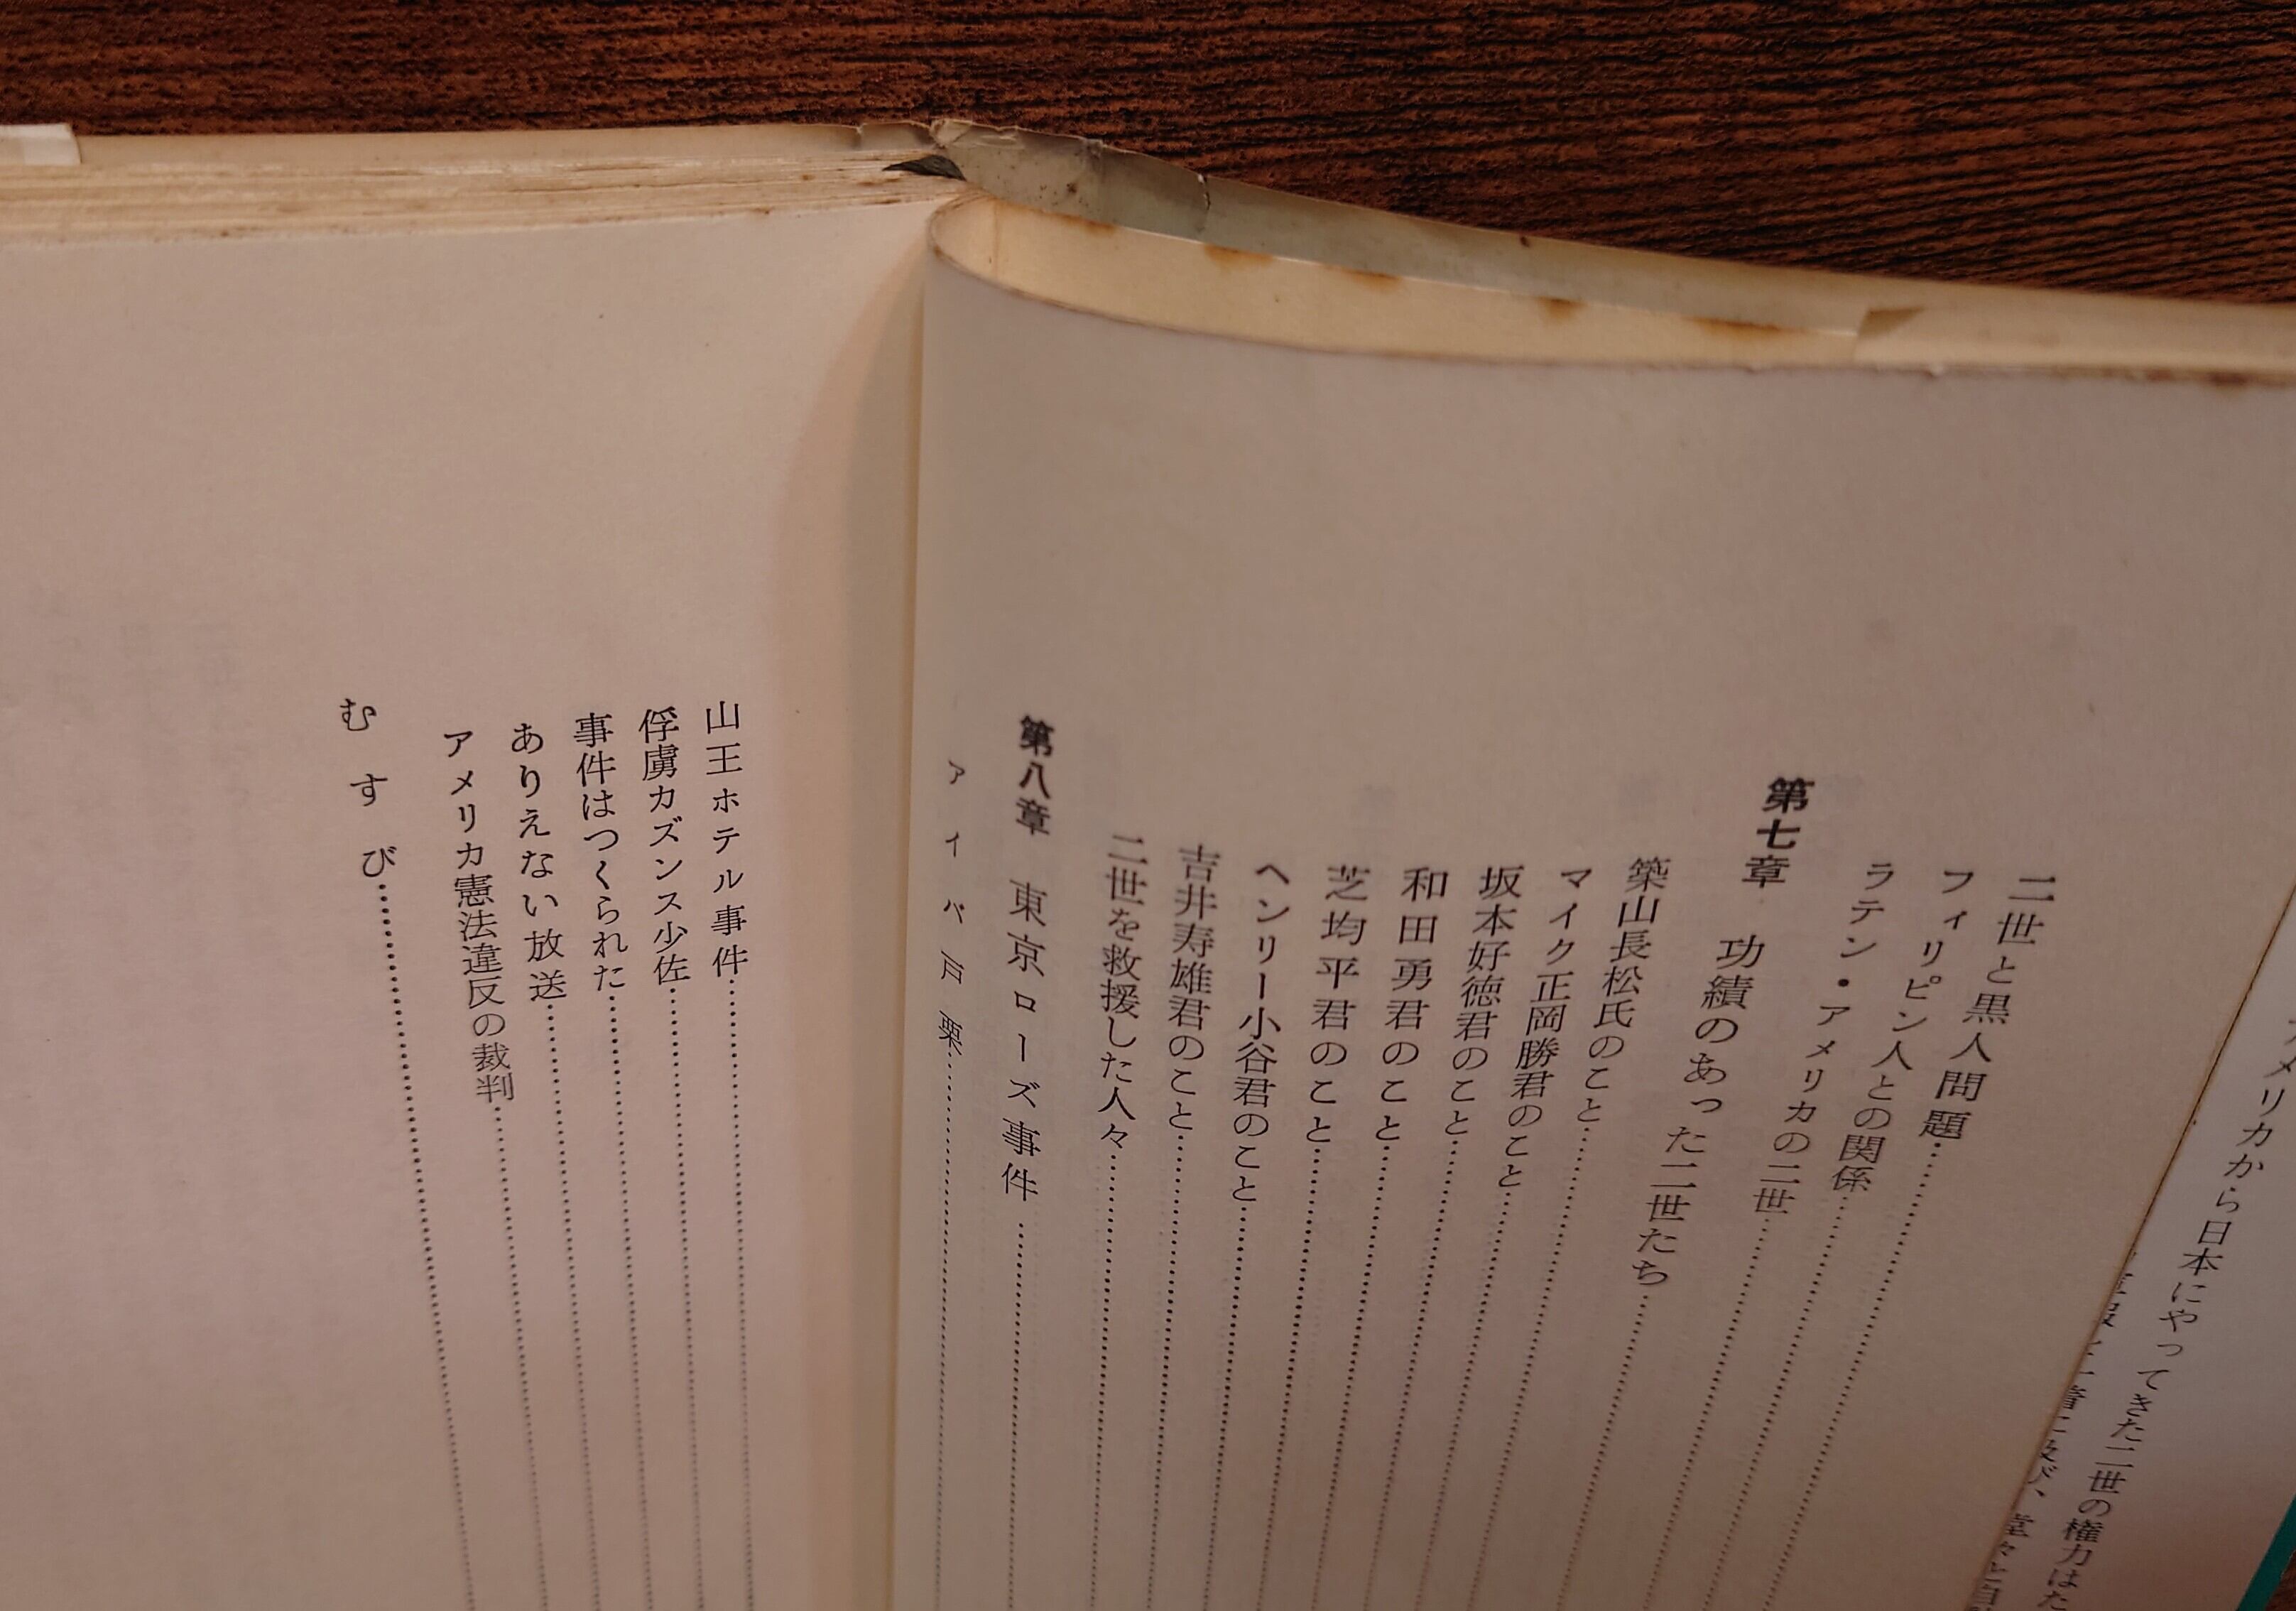 アメリカから日本にやってきた二世の権力はた
二世と黒人問題
フィリピン人との関係
ラテン・アメリカの二世
第七章 功績のあった二世たち
築山長松氏のこと
マイク正岡勝君のこと
坂本好徳君のこと
和田勇君のこと
芝均平君のこと
ヘンリー小谷君のこと
吉井寿雄君のこと
二世を救援した人々
第八章 東京ローズ事件
アイバ戸栗
山王ホテル事件
俘虜カズンス少佐
事件はつくられた
ありえない放送
アメリカ憲法違反の裁判
むすび